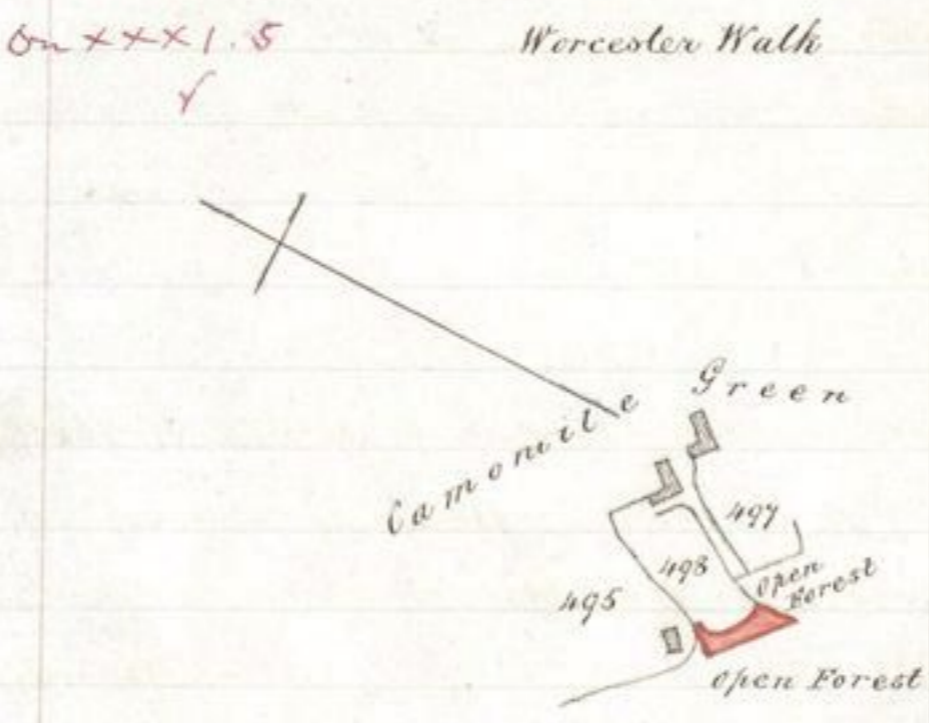 On XXXI.5
Worcester Walk
Camomile Green
497
498
open
Forest
495
open Forest